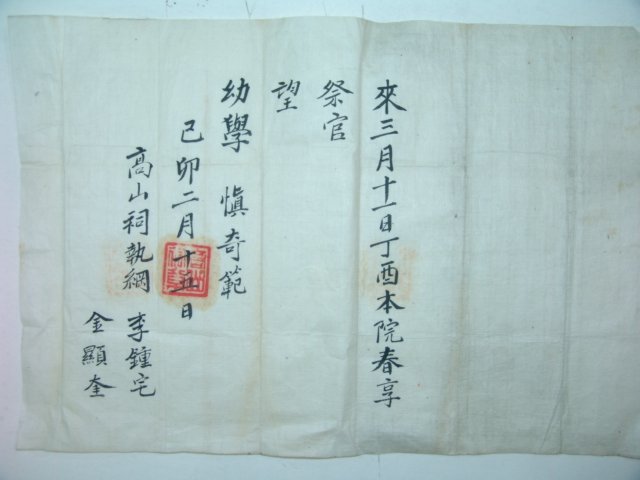 來三月十一日丁酉本院春享
祭官
望
幼學 愼奇範
己卯二月十五日
高山祠執綱 李鍾宅
金顯奎